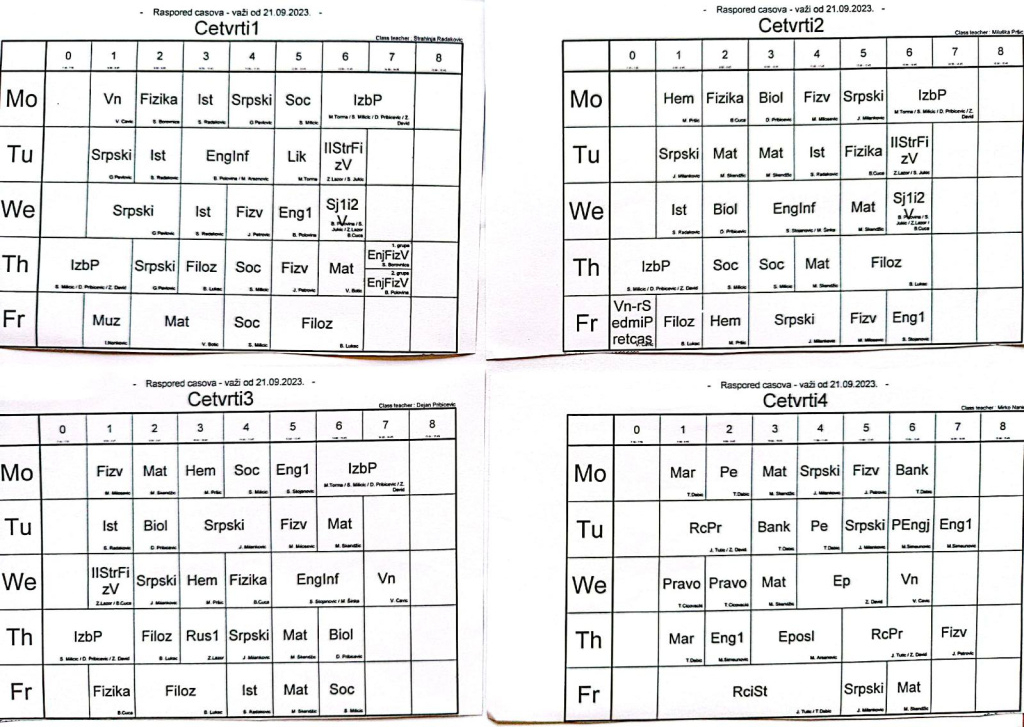 - Raspored casova - važi od 21.09.2023. -
Cetvrti1
Class teacher : Strahinja Radakovic
0 1 2 3 4 5 6 7 8
Mo Vn Fizika Ist Srpski Soc IzbP
V. Cavic S. Borovnica S. Radakovic G.Pavlovic S. Milicic M.Torma / S. Milicic / D. Pribicevic / Z. David
Tu Srpski Ist EngInf Lik IIStrFizV
G.Pavlovic S. Radakovic B. Polovina / M. Arsenovic M.Torma Z.Lazor / S. Jukic
We Srpski Ist Fizv Eng1 Sj1i2V
G.Pavlovic S. Radakovic J. Petrovic B. Polovina
Th IzbP Srpski Filoz Soc Fizv Mat 1. grupa EnjFizV
S. Borovnica
2. grupa EnjFizV
S. Milicic / D. Pribicevic / Z. David G.Pavlovic B. Lukec S. Milicic J. Petrovic V. Botic B. Polovina
Fr Muz Mat Soc Filoz
V. Botic S. Milicic B. Lukec
- Raspored casova - važi od 21.09.2023. -
Cetvrti2
Class teacher : Miluška Pršic
0 1 2 3 4 5 6 7 8
Mo Hem Fizika Biol Fizv Srpski IzbP
M. Pršic B.Cuca D. Pribicevic M. Milosevic J. Milenkovic M.Torma / S. Milicic / D. Pribicevic / Z. David
Tu Srpski Mat Mat Ist Fizika IIStrFizV
J. Milenkovic M. Skendžic M. Skendžic S. Radakovic B.Cuca Z.Lazor / S. Jukic
We Ist Biol EngInf Mat Sj1i2V
S. Radakovic D. Pribicevic S. Stojanovic / M. Šinka M. Skendžic
Th IzbP Soc Soc Mat Filoz
S. Milicic / D. Pribicevic / Z. David S. Milicic S. Milicic M. Skendžic B. Lukec
Fr Vn-rSedmiPretcas Filoz Hem Srpski Fizv Eng1
B. Lukec M. Pršic J. Milenkovic M. Milosevic S. Stojanovic
- Raspored casova - važi od 21.09.2023. -
Cetvrti3
Class teacher : Dejan Pribicevic
0 1 2 3 4 5 6 7 8
Mo Fizv Mat Hem Soc Eng1 IzbP
M. Milosevic M. Skendžic M. Pršic S. Milicic S. Stojanovic M.Torma / S. Milicic / D. Pribicevic / Z. David
Tu Ist Biol Srpski Fizv Mat
S. Radakovic D. Pribicevic J. Milenkovic M. Milosevic M. Skendžic
We IIStrFizV Srpski Hem Fizika EngInf Vn
Z.Lazor / B.Cuca J. Milenkovic M. Pršic B.Cuca S. Stojanovic / M. Šinka V. Cavic
Th IzbP Filoz Rus1 Srpski Mat Biol
S. Milicic / D. Pribicevic / Z. David B. Lukec Z.Lazor J. Milenkovic M. Skendžic D. Pribicevic
Fr Fizika Filoz Ist Mat Soc
B.Cuca B. Lukec S. Radakovic M. Skendžic S. Milicic
- Raspored casova - važi od 21.09.2023. -
Cetvrti4
Class teacher : Mirko
0 1 2 3 4 5 6 7 8
Mo Mar Pe Mat Srpski Fizv Bank
T.Dabic T.Dabic M. Skendžic J. Milenkovic J. Petrovic T.Dabic
Tu RcPr Bank Pe Srpski PEngj Eng1
J. Tutic / Z. David T.Dabic T.Dabic J. Milenkovic M.Simeunovic M.Simeunovic
We Pravo Pravo Mat Ep Vn
M. Skendžic Z. David V. Cavic
Th Mar Eng1 Eposl RcPr Fizv
T.Dabic M.Simeunovic M. Arsenovic J. Tutic / Z. David J. Petrovic
Fr RciSt Srpski Mat
J. Tutic / T.Dabic J. Milenkovic M. Skendžic